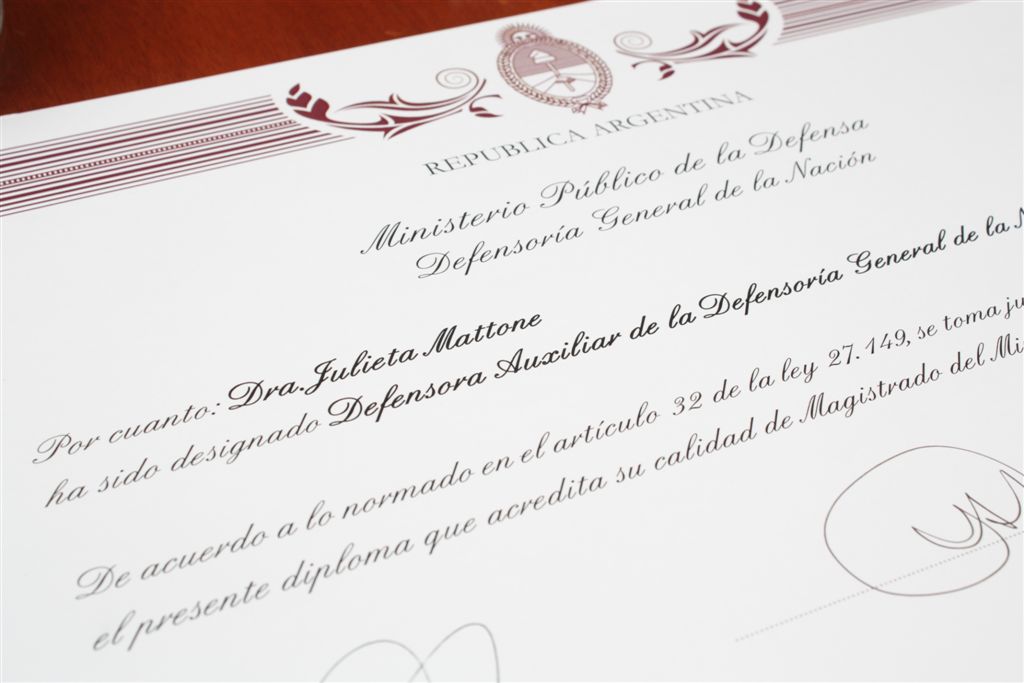 REPUBLICA ARGENTINA
Ministerio Público de la Defensa
Defensoría General de la Nación
Por cuanto: Dra. Julieta Mattone
ha sido designado Defensora Auxiliar de la Defensoría General de la
De acuerdo a lo normado en el artículo 32 de la ley 27.149, se toma
el presente diploma que acredita su calidad de Magistrado del